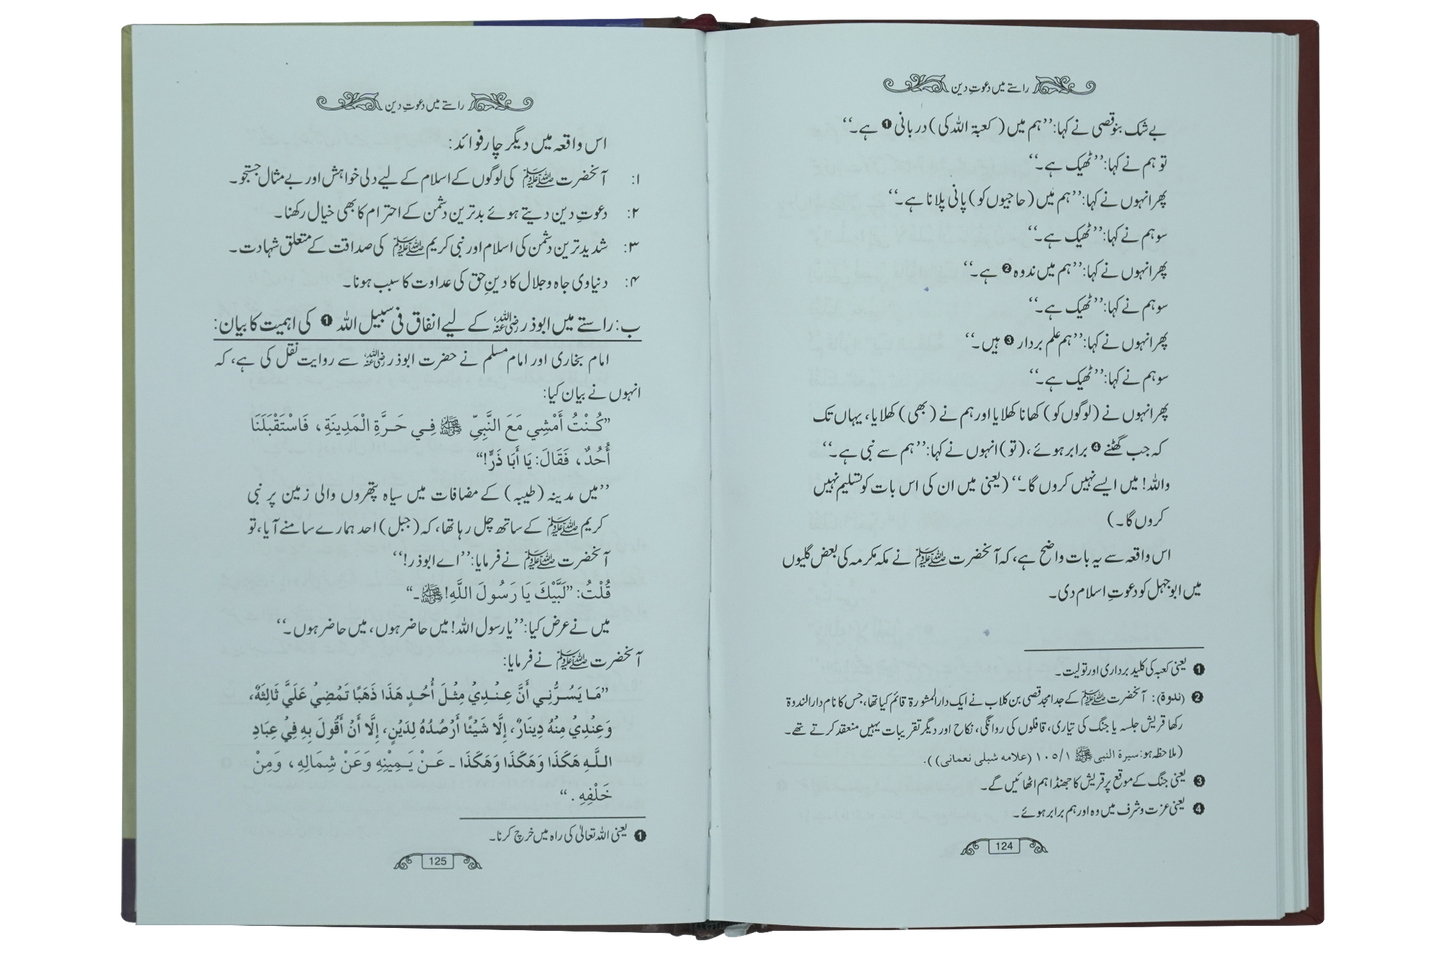 راستے میں دعوتِ دین
بے شک بنو قصی نے کہا: ’’ہم میں (کعبۃ اللہ کی) دربانی ❶ ہے۔‘‘
تو ہم نے کہا: ’’ٹھیک ہے۔‘‘
پھر انہوں نے کہا: ’’ہم میں (حاجیوں کو) پانی پلانا ہے۔‘‘
سو ہم نے کہا: ’’ٹھیک ہے۔‘‘
پھر انہوں نے کہا: ’’ہم میں ندوہ ❷ ہے۔‘‘
سو ہم نے کہا: ’’ٹھیک ہے۔‘‘
پھر انہوں نے کہا: ’’ہم علم بردار ❸ ہیں۔‘‘
سو ہم نے کہا: ’’ٹھیک ہے۔‘‘
پھر انہوں نے (لوگوں کو) کھانا کھلایا اور ہم نے (بھی) کھلایا، یہاں تک
کہ جب گھٹنے ❹ برابر ہوئے، (تو) انہوں نے کہا: ’’ہم سے نبی ہے۔‘‘
واللہ! میں ایسے نہیں کروں گا۔‘‘ (یعنی میں ان کی اس بات کو تسلیم نہیں
کروں گا۔)
اس واقعہ سے یہ بات واضح ہے، کہ آنحضرت ﷺ نے مکہ مکرمہ کی بعض گلیوں
میں ابوجہل کو دعوتِ اسلام دی۔
❶ یعنی کعبہ کی کلید برداری اور تولیت۔
❷ (ندوۃ): آنحضرت ﷺ کے جد امجد قصی بن کلاب نے ایک دارالمشورۃ قائم کیا تھا، جس کا نام دارالندوۃ
رکھا قریش جلسہ یا جنگ کی تیاری، قافلوں کی روانگی، نکاح اور دیگر تقریبات یہیں منعقد کرتے تھے۔
(ملاحظہ ہو: سیرۃ النبی ﷺ ١٠٥/١ (علامہ شبلی نعمانی)).
❸ یعنی جنگ کے موقع پر قریش کا جھنڈا ہم اٹھائیں گے۔
❹ یعنی عزت و شرف میں وہ اور ہم برابر ہوئے۔
124
راستے میں دعوتِ دین
اس واقعہ میں دیگر چار فوائد:
۱: آنحضرت ﷺ کی لوگوں کے اسلام کے لیے دلی خواہش اور بے مثال جستجو۔
۲: دعوتِ دین دیتے ہوئے بدترین دشمن کے احترام کا بھی خیال رکھنا۔
۳: شدید ترین دشمن کی اسلام اور نبی کریم ﷺ کی صداقت کے متعلق شہادت۔
۴: دنیاوی جاہ و جلال کا دینِ حق کی عداوت کا سبب ہونا۔
ب: راستے میں ابوذر رضی اللہ عنہ کے لیے انفاق فی سبیل اللہ ❶ کی اہمیت کا بیان:
امام بخاری اور امام مسلم نے حضرت ابوذر رضی اللہ عنہ سے روایت نقل کی ہے، کہ
انہوں نے بیان کیا:
”كُنْتُ أَمْشِي مَعَ النَّبِيِّ ﷺ فِي حَرَّةِ الْمَدِينَةِ، فَاسْتَقْبَلَنَا
أُحُدٌ، فَقَالَ: يَا أَبَا ذَرٍّ!“
’’میں مدینہ (طیبہ) کے مضافات میں سیاہ پتھروں والی زمین پر نبی
کریم ﷺ کے ساتھ چل رہا تھا، کہ (جبل) احد ہمارے سامنے آیا، تو
آنحضرت ﷺ نے فرمایا: ’’اے ابوذر!‘‘
قُلْتُ: ”لَبَّيْكَ يَا رَسُولَ اللَّهِ! ﷺ۔“
میں نے عرض کیا: ’’یا رسول اللہ! میں حاضر ہوں، میں حاضر ہوں۔‘‘
آنحضرت ﷺ نے فرمایا:
”مَا يَسُرُّنِي أَنَّ عِنْدِيْ مِثْلَ أُحُدٍ هَذَا ذَهَبًا تَمْضِيْ عَلَيَّ ثَالِثَةٌ،
وَعِنْدِيْ مِنْهُ دِينَارٌ، إِلَّا شَيْئًا أَرْصُدُهُ لِدَيْنٍ، إِلَّا أَنْ أَقُولَ بِهِ فِيْ عِبَادِ
اللَّهِ هَكَذَا وَهَكَذَا وَهَكَذَا ۔ عَنْ يَمِينِهِ وَعَنْ شِمَالِهِ، وَمِنْ
خَلْفِهِ . “
❶ یعنی اللہ تعالیٰ کی راہ میں خرچ کرنا۔
125